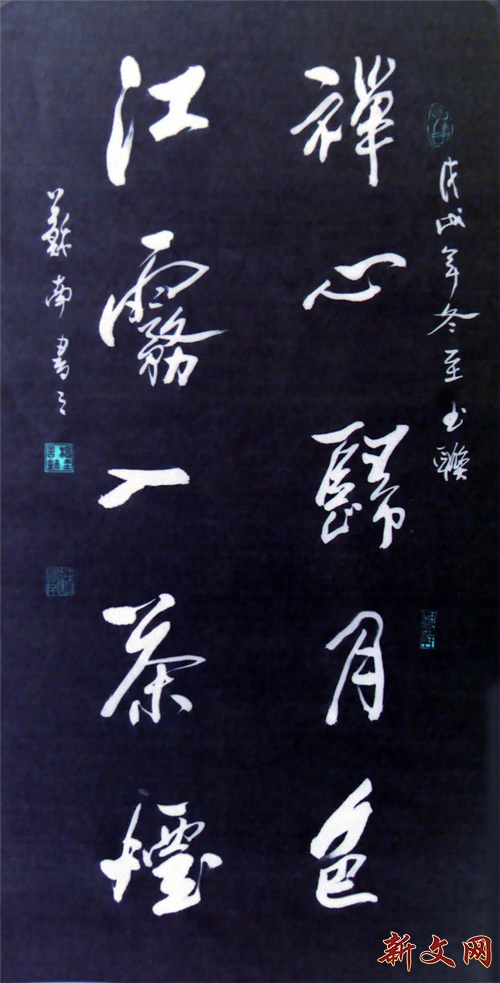 戊戌年冬至书聯
禪心歸月色
江霧入茶煙
蘇南書之
新文网